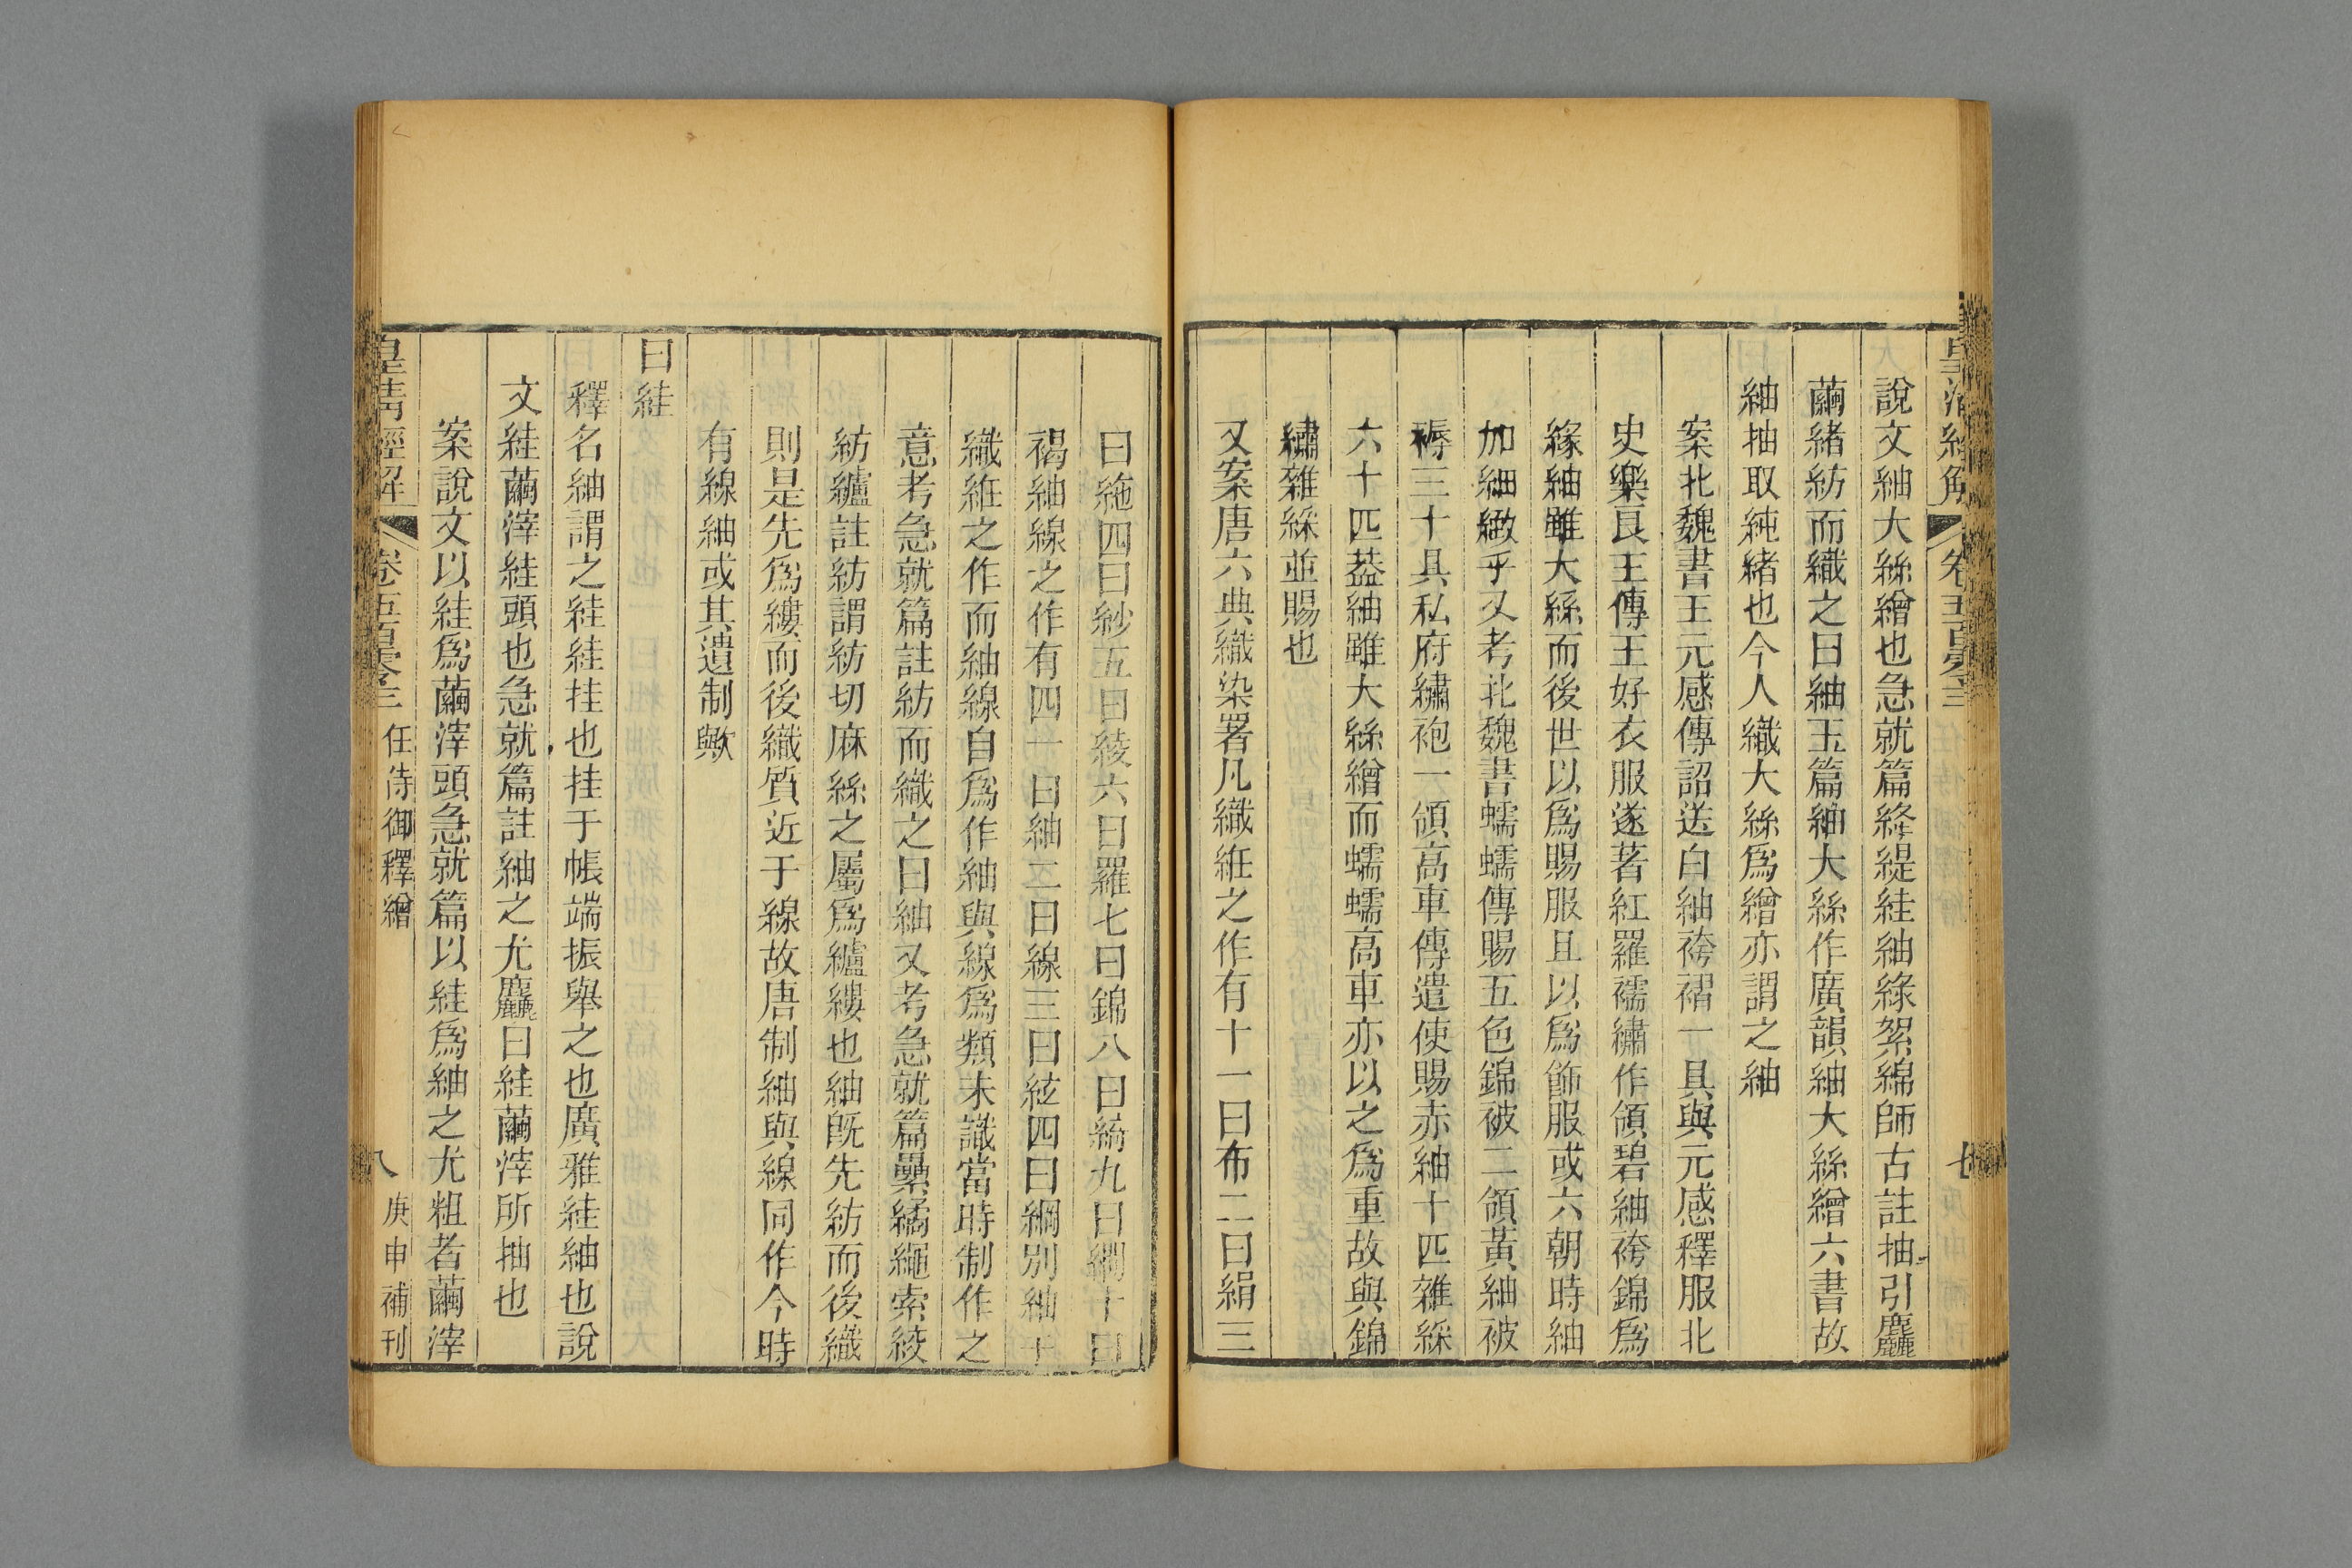 說文紬大絲繒也急就篇絳緹絓紬絲絮綿師古註抽引麤
繭緒紡而織之曰紬玉篇紬大絲作廣韻紬大絲繒六書故
紬抽取純緒也今人織大絲爲繒亦謂之紬
案北魏書王元感傳詔送白紬袴褶一具與元感釋服北
史樂良王傳王好衣服遂著紅羅襦繡作領碧紬袴錦爲
緣紬雖大絲而後世以爲賜服且以爲飾服或六朝時紬
加細緻乎又考北魏書蠕蠕傳賜五色錦被二領黃紬被
褥三十具私府繡袍一領高車傳遣使賜赤紬十匹雜綵
六十匹葢紬雖大絲繒而蠕蠕高車亦以之爲重故與錦
繡雜綵並賜也
又案唐六典織染署凡織絍之作有十一曰布二曰絹三
曰絁四曰紗五曰綾六曰羅七曰錦八曰綺九曰繝十曰
褐紬線之作有四一曰紬二曰線三曰絃四曰網別紬于
織絍之作而紬線自爲作紬與線爲類未識當時制作之
意考急就篇註紡而織之曰紬又考急就篇纍繘繩索絞
紡纑註紡謂紡切麻絲之屬爲纑縷也紬旣先紡而後織
則是先爲縷而後織質近于線故唐制紬與線同作今時
有線紬或其遺制歟
曰絓
釋名紬謂之絓絓挂也挂于帳端振舉之也廣雅絓紬也說
文絓繭滓絓頭也急就篇註紬之尤麤曰絓繭滓所抽也
案說文以絓爲繭滓頭急就篇以絓爲紬之尤粗者繭滓
皇清經解 卷五百零三 任侍御釋繒 八 庚申補刊